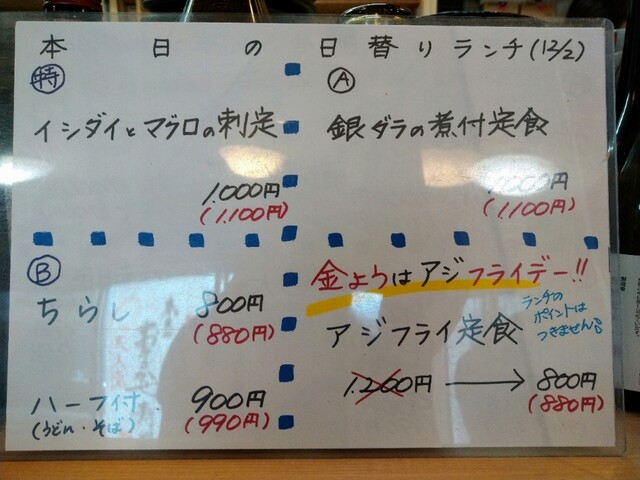 本日の日替りランチ(12/2)
特
イシダイとマグロの刺定
1.000円
(1.100円)
A
銀ダラの煮付定食
1.000円
(1.100円)
B
ちらし 800円
(880円)
ハーフ付 900円
(うどん・そば) (990円)
金ようはアジフライデー!!
ランチの
ポイントは
つきません
アジフライ定食
1.200円 → 800円
(880円)